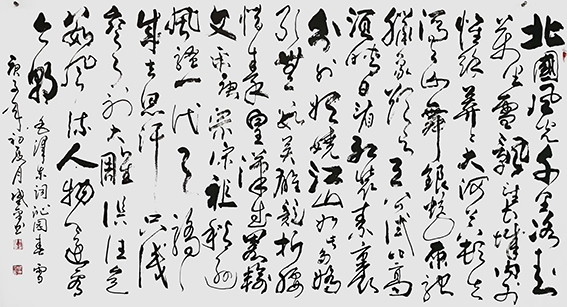 北國風光千里冰封
萬里雪飄望長城内外
惟餘莽莽大河上下頓失
滔滔山舞銀蛇原馳
臘象欲與天公試比高
須晴日看紅裝素裹
分外妖嬈江山如此多嬌
引無數英雄競折腰
惜秦皇漢武略輸
文采唐宗宋祖稍遜
風騷一代天驕
成吉思汗只識
彎弓射大雕俱往矣
數風流人物還看
今朝 毛澤東詞沁園春雪
庚子年初夏月